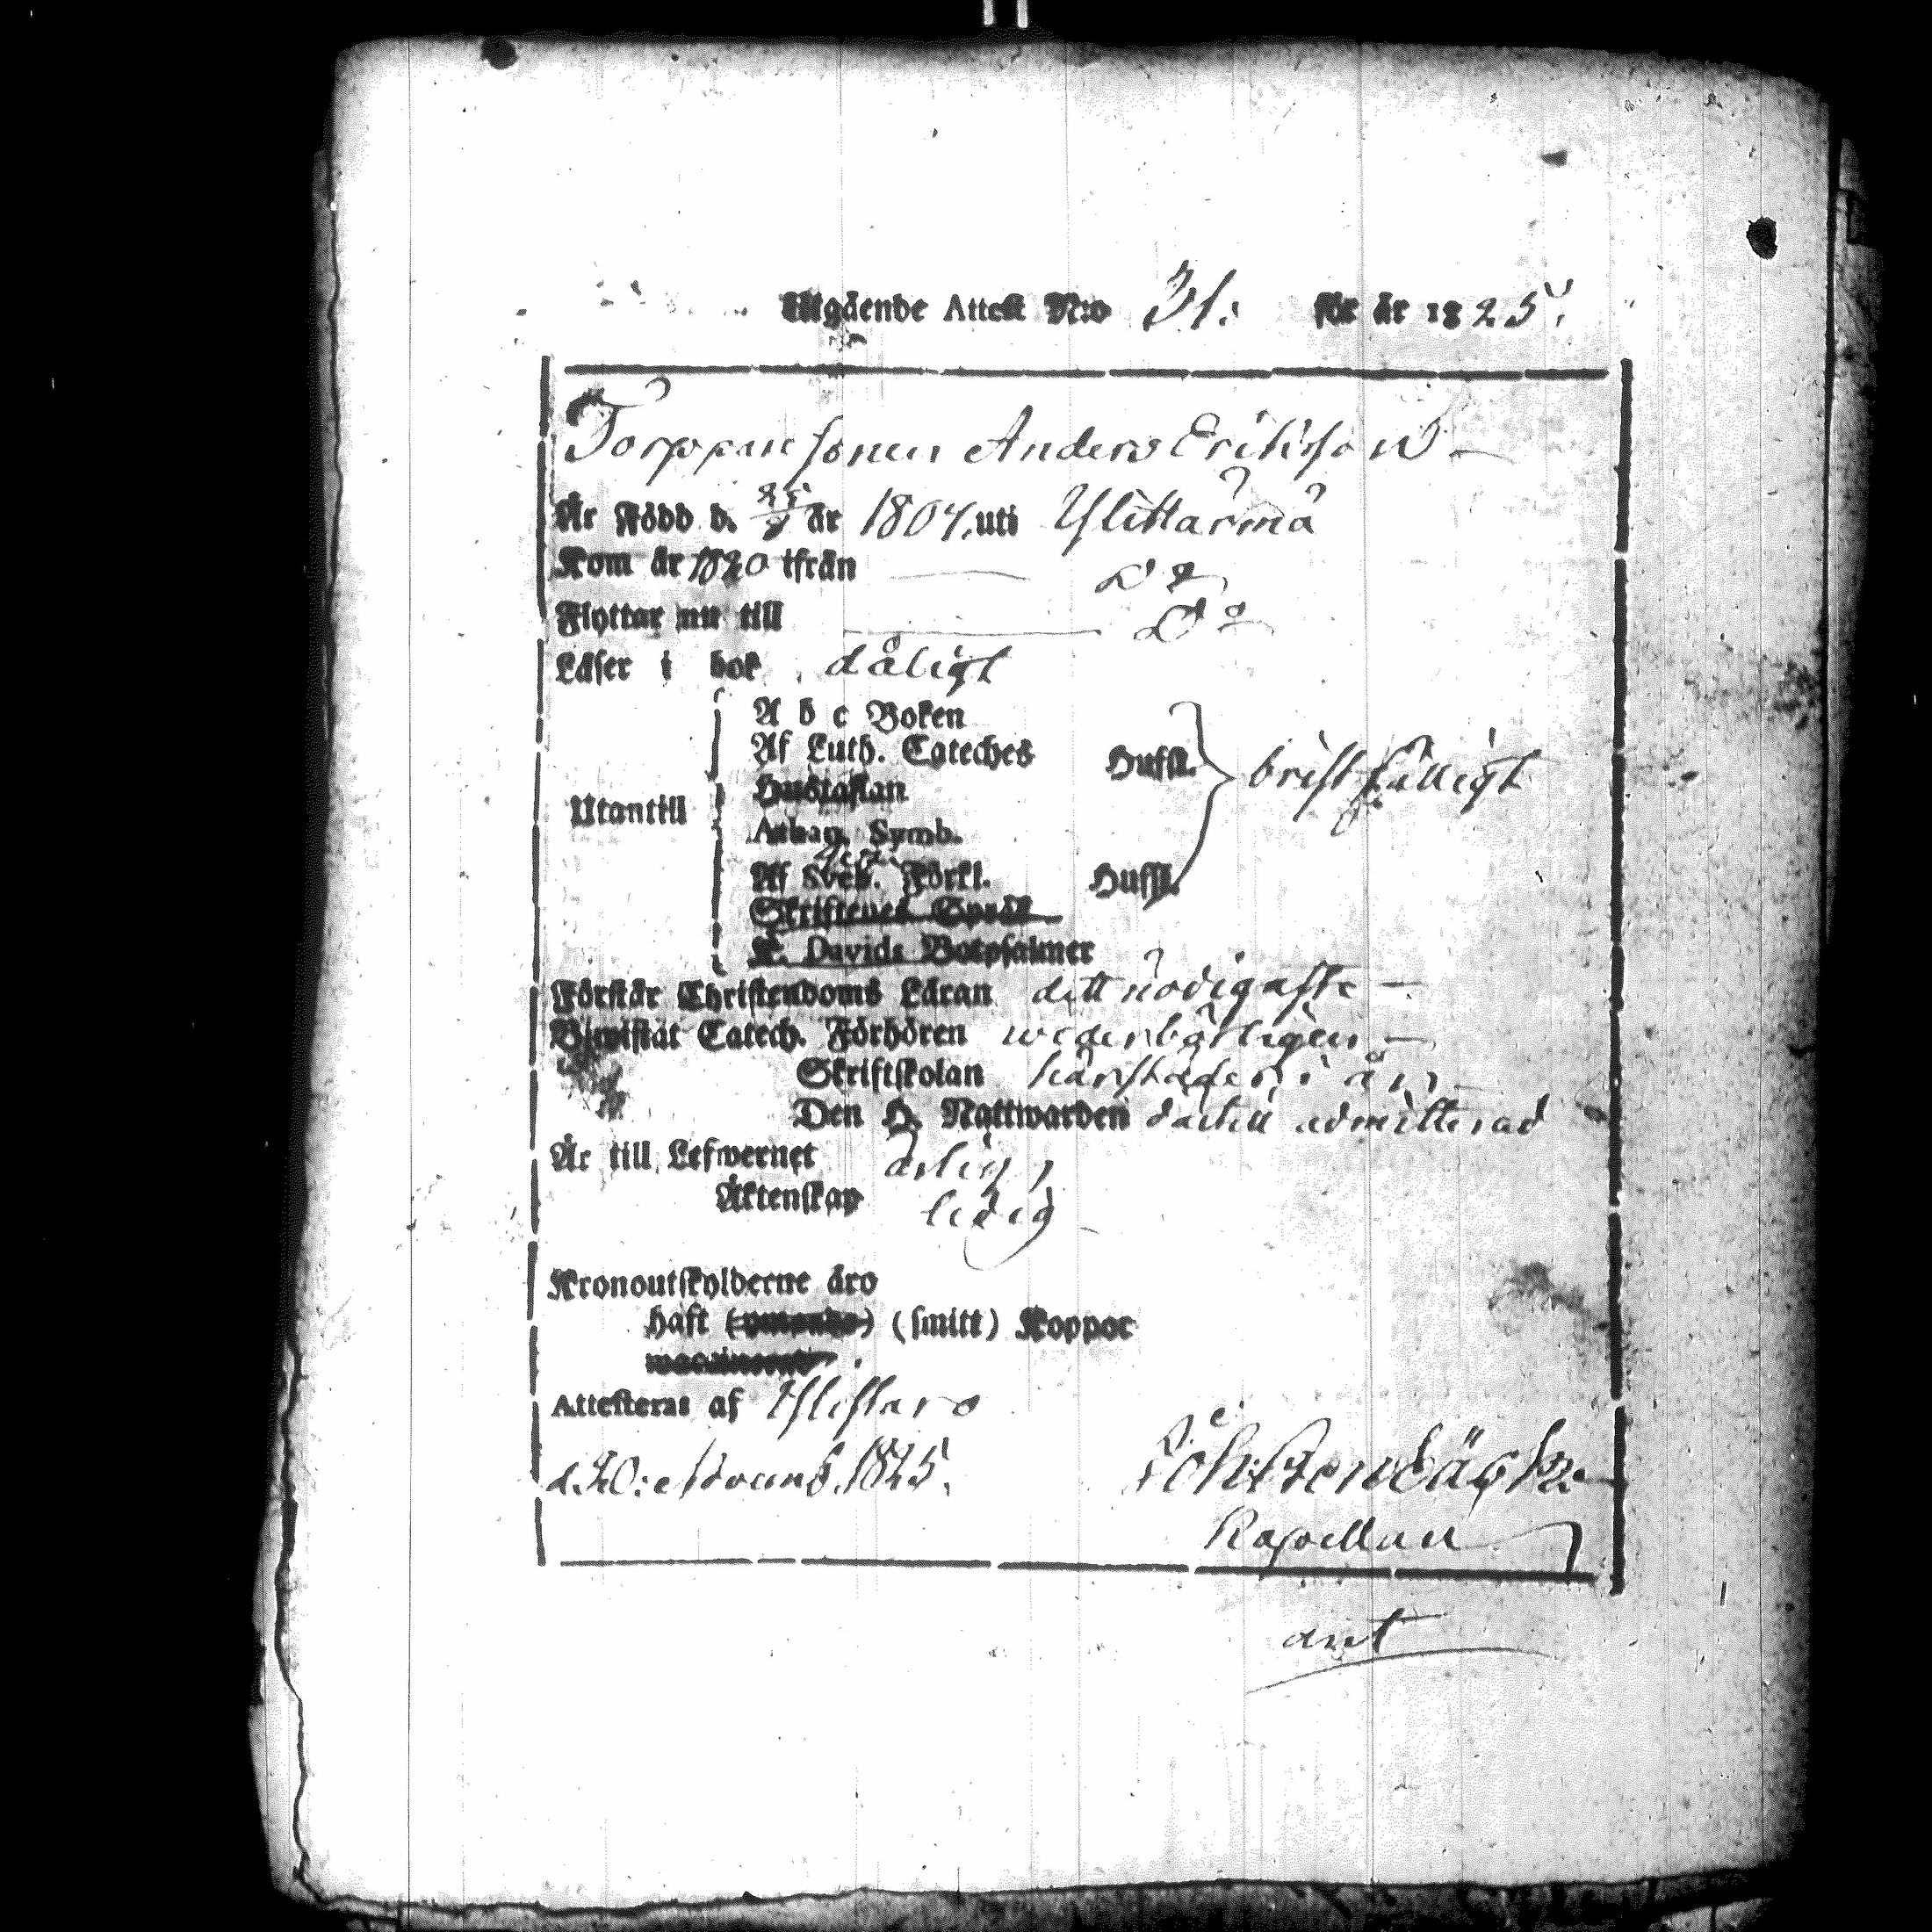 Utgående Attest N:o 31. för år 1825.
Torppare sonen Anders Eriksson
Är Född d. 25/8 år 1804. uti Ylikitärmä
Kom år 1820 ifrån D:o
Flyttar nu till D:o
Läser i bok dåligt
Utantill
A b c Boken
Af Luth. Cateches Hufst.
Hustaflan bristfälligt
Athan. Symb.
Af Sveb. Förkl. Hufst.
Skriftenes Språk
K. Davids Botpsalmer
Förstår Christendoms Läran dett nödigaste
Biwistat Catech. Förhören wederbörligen
Skriftskolan härstädes i år
Den H. Nattwarden dertill admitterad
Är till Lefwernet ärlig
Äktenskap ledig
Kronoutskylderne äro
haft (smitt) Koppor
waccinerat
Attesteras af Ylistaro
d. 20. Novemb. 1825.
Kapellan
ant